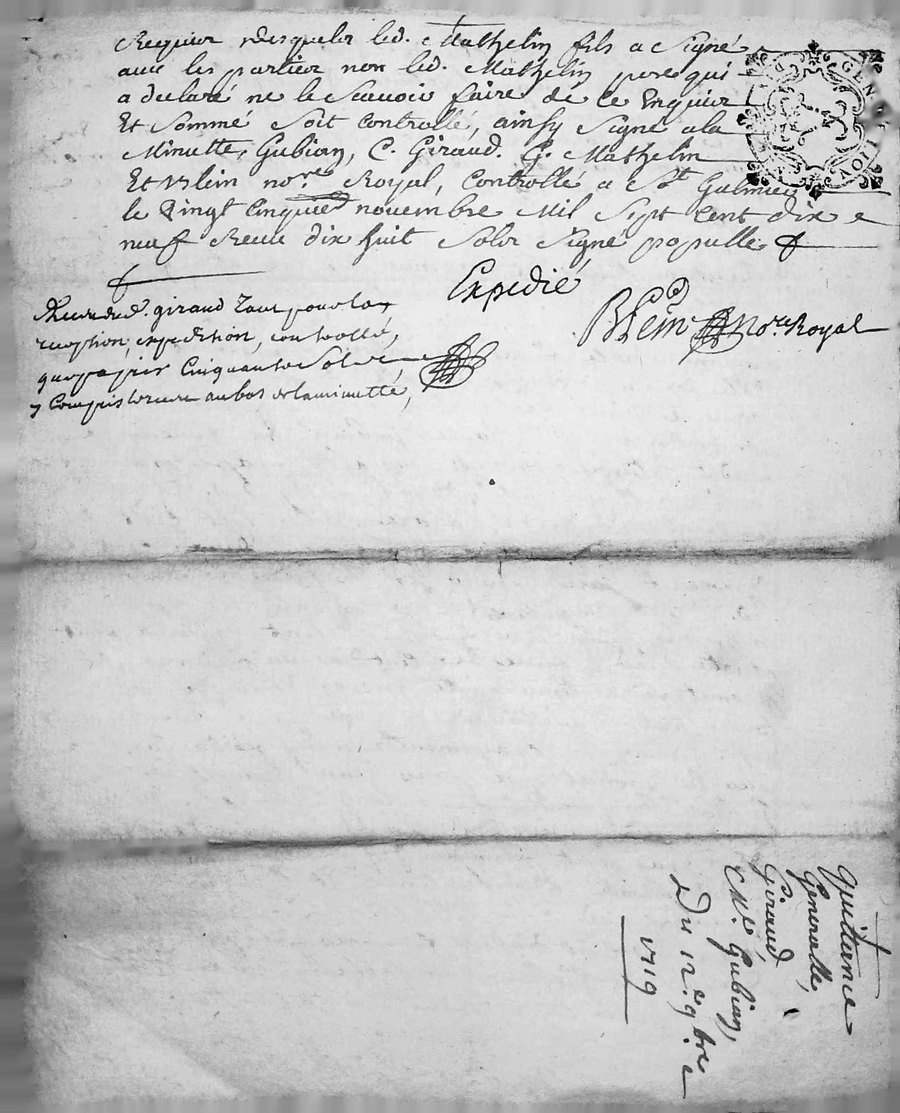 Requier desquelz led. Mathelin fils a Signé
avec les partiez non led. Mathelin pere qui
a declaré ne le Scavoir faire de ce Enquier
Et Sommé Soit Controllé, ainsy Signé a la
Minutte, Gubian, C. Giraud. G. Mathelin
Et nore. Royal, Controllé a St Galmier
le Vingt Cinquie novembre Mil Sept Cent dix e
neuf Receu dix huit Solz Signé
Expedié
nore Royal
giraud tant pour la
reception, expedition, controlle,
que papier Cinquante Solz
y Compris au bas de la minutte,
GEN
Quittance
Generalle,
Giraud
Et Gubian,
Du 12e. 9bre
1719